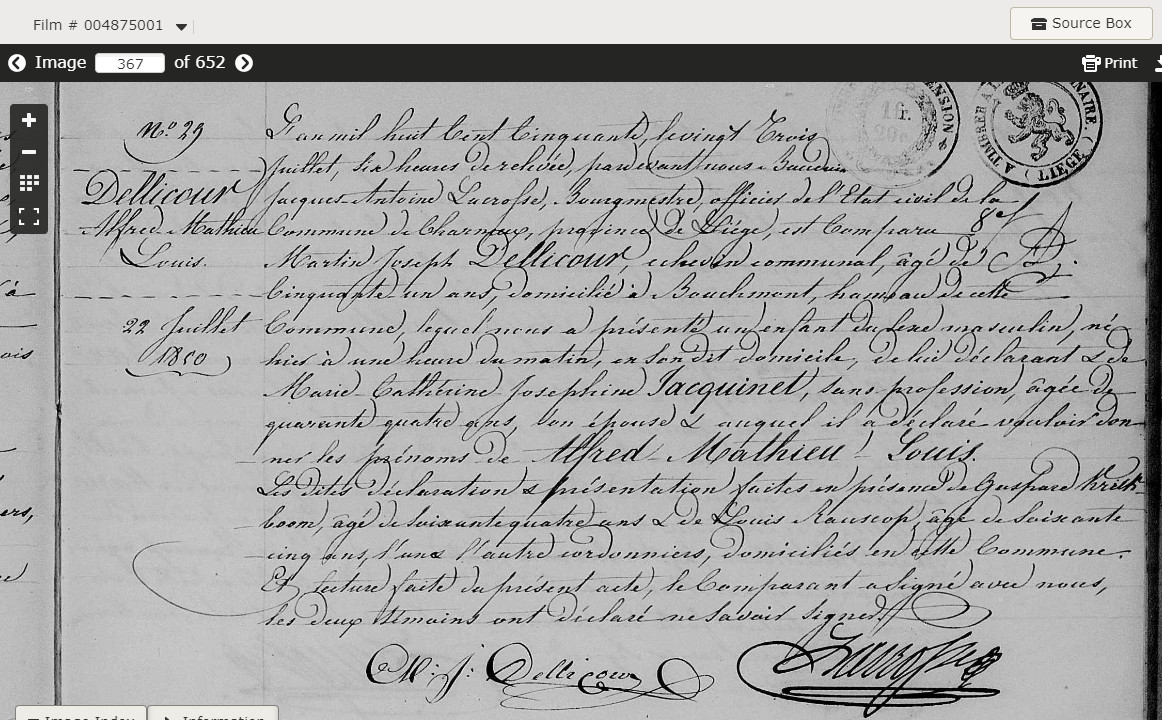 Film # 004875001
Source Box
Image 367 of 652
Print
N.° 29
Dellicour
Alfred Mathieu
Louis.
22 Juillet
1850
L'an mil huit Cent Cinquante, le vingt Trois
Juillet, six heures de relevée, pardevant nous Baudouin
Jacques Antoine Lacrosse, Bourgmestre, officier de l'Etat civil de la
Commune de Charneux, province de Liège, est Comparu
Martin Joseph Dellicour, echevin communal, âgé de
Cinquante un ans, domicilié à Bouxhmont, hameau de cette
Commune, lequel nous a présenté un enfant du sexe masculin, né
hier à une heure du matin, en son dit domicile, de lui déclarant & de
Marie Catherine Josephine Jacquinet, sans profession, âgée de
quarante quatre ans, son épouse & auquel il a déclaré vouloir don
ner les prénoms de Alfred Mathieu Louis.
Les dites déclaration & présentation faites en présence de Gaspard
boom, âgé de soixante quatre ans & de Louis Rauscop, âgé de soixante
cinq ans, l'un & l'autre cordonniers, domiciliés en cette Commune.
Et lecture faite du présent acte, le Comparant a signé avec nous,
les deux témoins ont déclaré ne savoir signer
M: J: Dellicour
Lacrosse
1 fr.
20c
TIMBRE A L'EXTRAORDINAIRE.
( LIEGE )
Image Index
Information